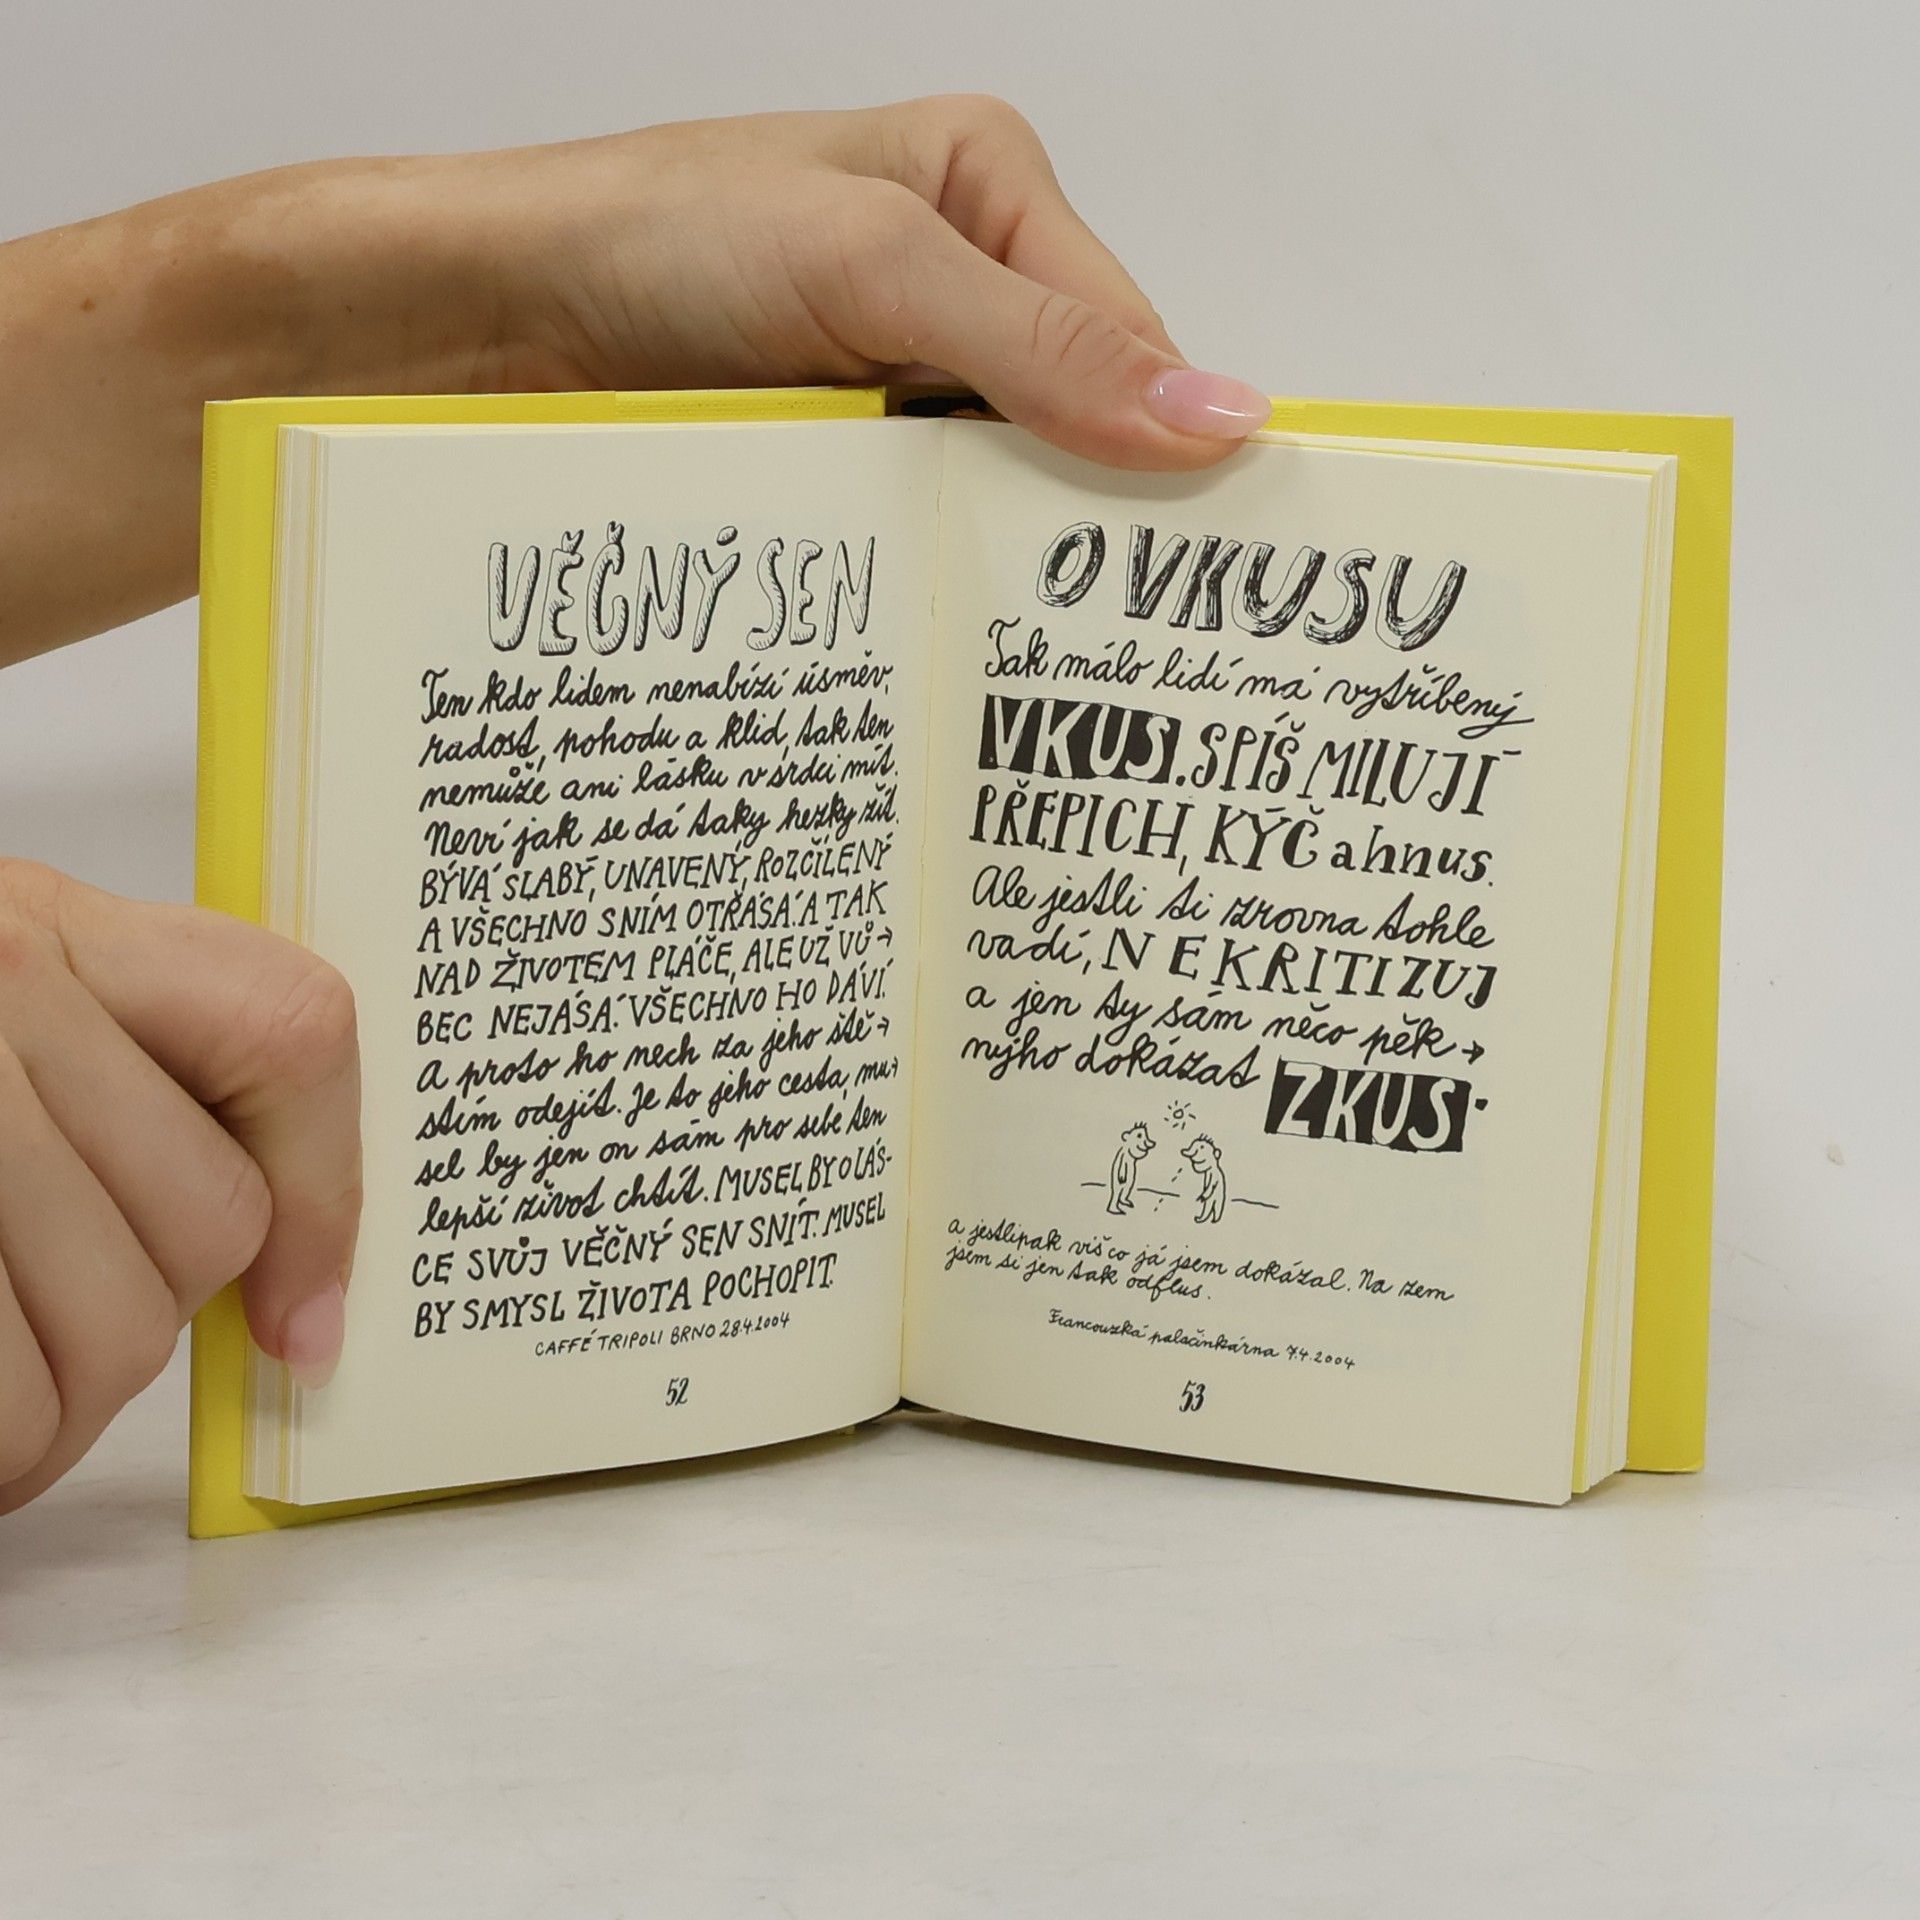 VĚČNÝ SEN
Ten kdo lidem nenabízí úsměv,
radost, pohodu a klid, tak ten
nemůže ani lásku v srdci mít.
Neví jak se dá taky hezky žít.
BÝVÁ SLABÝ, UNAVENÝ, ROZČÍLENÝ
A VŠECHNO SNÍM OTŘÁSÁ. A TAK
NAD ŽIVOTEM PLÁČE, ALE UŽ VŮ→
BEC NEJÁSÁ. VŠECHNO HO DÁVÍ.
A proto ho nech za jeho ště→
stím odejít. Je to jeho cesta, mu→
sel by jen on sám pro sebe ten
lepší život chtít. MUSEL BY O LÁS-
CE SVŮJ VĚČNÝ SEN SNÍT. MUSEL
BY SMYSL ŽIVOTA POCHOPIT.
CAFFÉ TRIPOLI BRNO 28.4.2004
52
O VKUSU
Tak málo lidí má vytříbený
VKUS. SPÍŠ MILUJÍ
PŘEPICH, KÝČ a hnus.
Ale jestli ti zrovna tohle
vadí, NEKRITIZUJ
a jen ty sám něco pěk→
nýho dokázat ZKUS.
a jestlipak víš co já jsem dokázal. Na zem
jsem si jen tak odflus.
Francouzká palačinkárna 7.4.2004
53